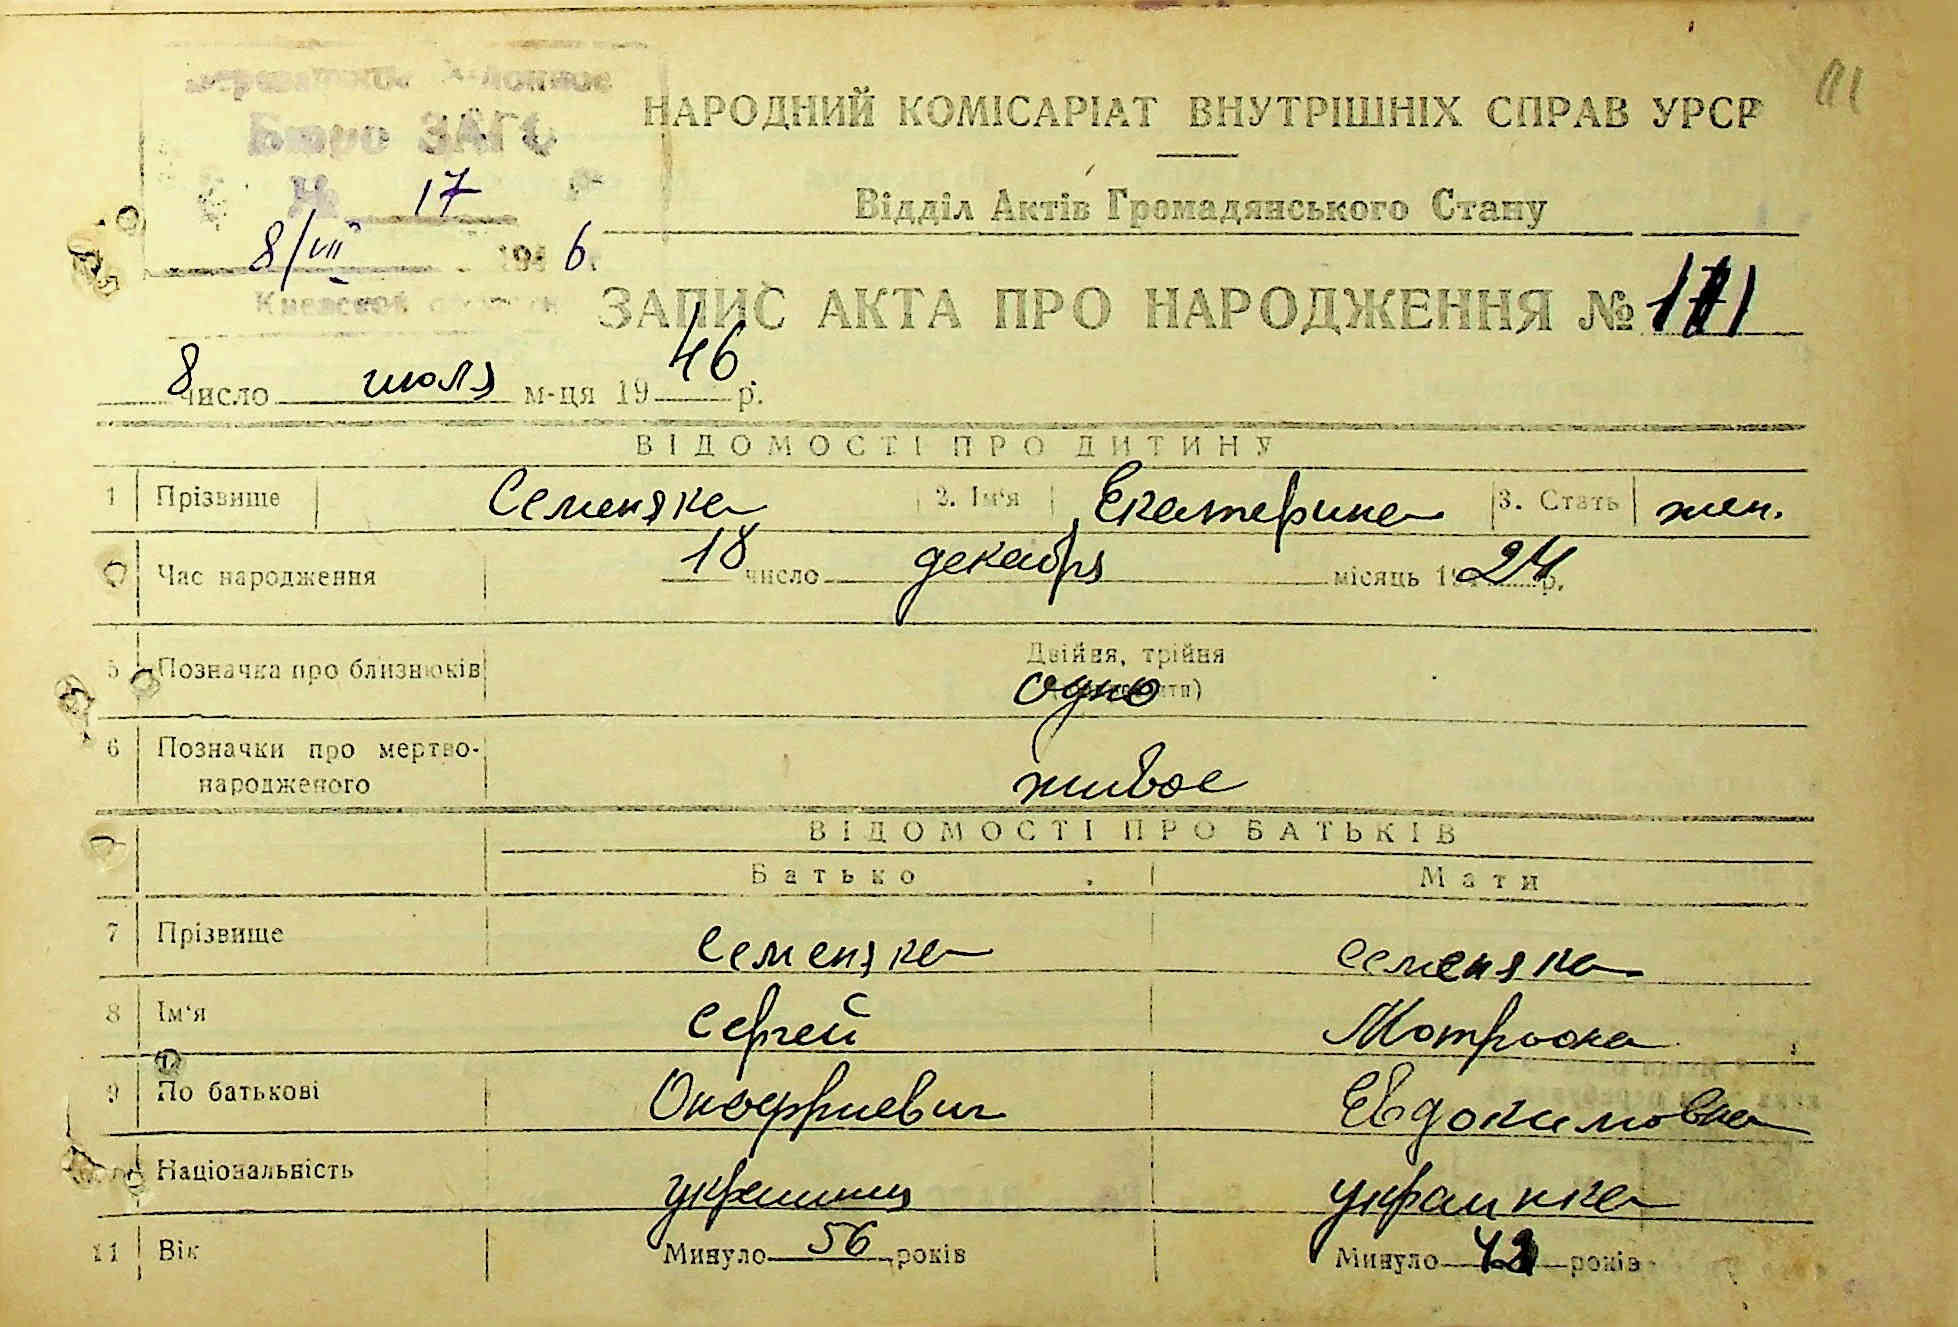 Бюро ЗАГС
№ 17
8/VII 1946.
Киевской области
НАРОДНИЙ КОМІСАРІАТ ВНУТРІШНІХ СПРАВ УРСР
Відділ Актів Громадянського Стану
ЗАПИС АКТА ПРО НАРОДЖЕННЯ №
8 число июля м-ця 1946 р.
ВІДОМОСТІ ПРО ДИТИНУ
1 Прізвище Семеняка 2. Ім'я Екатерина 3. Стать жен.
Час народження 18 число декабря місяць 1924 р.
5 Позначка про близнюків Двійня, трійня
одно
6 Позначки про мертво-
народженого живое
ВІДОМОСТІ ПРО БАТЬКІВ
Батько Мати
7 Прізвище Семеняка Семеняка
8 Ім'я Сергей Мотрона
9 По батькові Оноффриевич Евдокимовна
Національність украинец украинка
11 Вік Минуло 56 років Минуло років